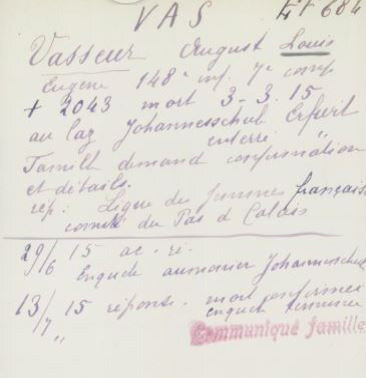 VAS Er 684
Vasseur August Louis
Eugène 148e inf. 7e comp
+ 2043 mort 3-3.15
au laz Johannesschule Erfurt
enterré "
Famille demand confirmation
et détails.
rep: Ligue des femmes français
comité du Pas d Calais
29/6 15 ac. re.
Enquete aumonier Johannesschule
13/7 15 réponse. mort confirmée
" enquete
Communiqué famille